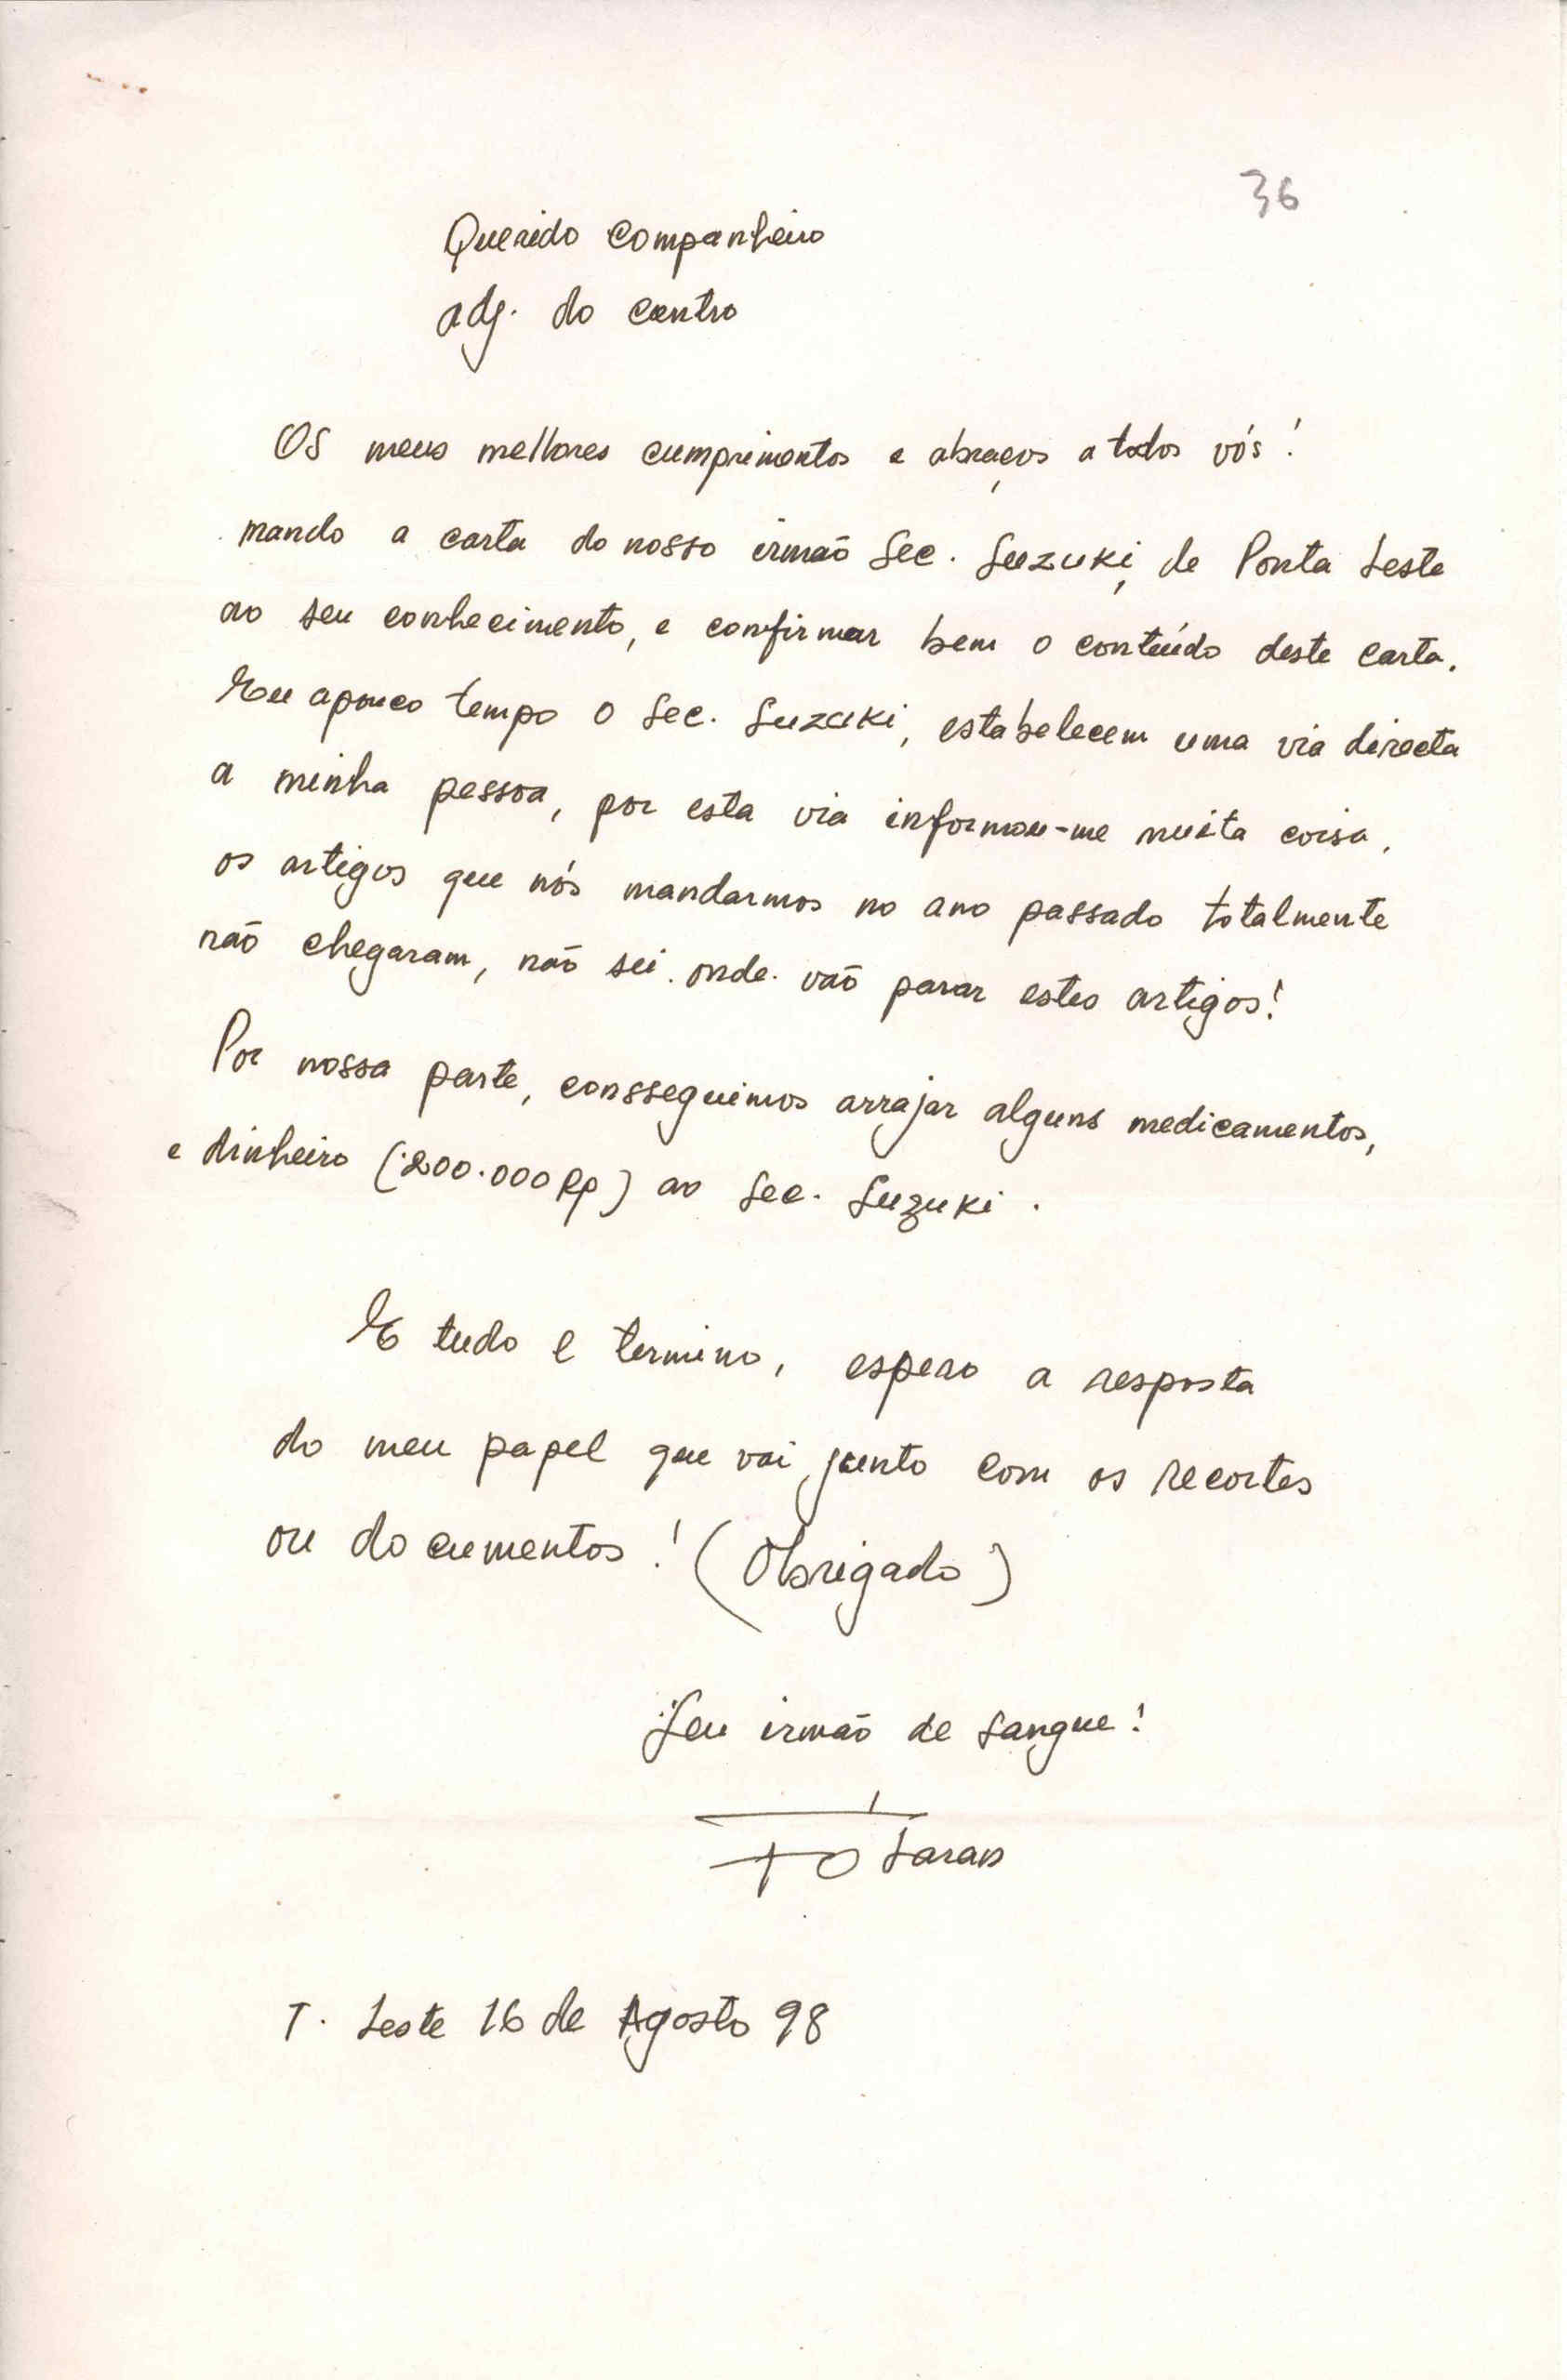 36
Querido companheiro
adj. do centro
OS meus melhores cumprimentos e abraços a todos vós!
mando a carta do nosso irmão Sec. Suzuki, de Ponta Leste
ao seu conhecimento, e confirmar bem o conteúdo deste carta.
Eu apouco tempo o Sec. Suzuki, estabelecem uma via directa
a minha pessoa, por esta via informou-me muita coisa,
os artigos que nós mandarmos no ano passado totalmente
não chegaram, não sei onde vão parar estes artigos!
Por nossa parte, consseguimos arrajar alguns medicamentos,
e dinheiro (200.000 Rp) ao Sec. Suzuki.
E tudo e termino, espero a resposta
do meu papel que vai junto com os recortes
ou documentos! (Obrigado)
Seu irmão de Sangue!
T. Leste 16 de Agosto 98